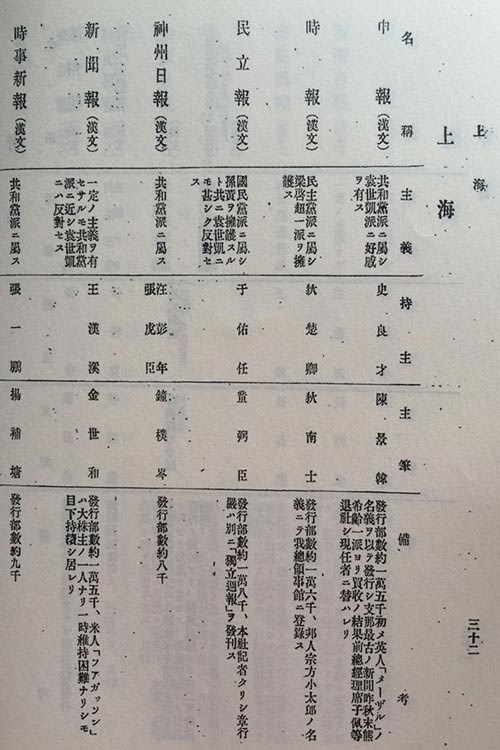 上海
三十二
上海
名稱
主義
持主
主筆
備考
申報（漢文）
共和黨派ニ屬シ
袁世凱派ニ好感
ヲ有ス
史良才
陳景韓
發行部數約一萬五千、初メ英人「メーヂル」ノ
名義ヲ以テ發行シ支那最古ノ新聞昨秋末熊
希齡一派ヨリ買收ノ結果前總經理席子佩等
退社シ現任者ニ替ハレリ
時報（漢文）
民主黨派ニ屬シ
梁啓超一派ヲ擁
護ス
狄楚卿
狄南士
發行部數約一萬六千、邦人宗方小太郎ノ名
義ニテ我總領事館ニ登錄ス
民立報（漢文）
國民黨派ニ屬シ
孫黃ヲ擁護スル
ト共ニ袁世凱ニ
モ甚シク反對セ
ス
于佑任
童弼臣
發行部數約一萬八千、本社記者タリシ章行
嚴ハ別ニ「獨立週報」ヲ發刊ス
神州日報（漢文）
共和黨派ニ屬ス
汪彭年
張虎臣
鐘樸岑
發行部數約八千
新聞報（漢文）
一定ノ主義ヲ有
セサルモ共和黨
派ニ近シ袁世凱
ニハ反對セス
王漢溪
金世和
發行部數約一萬五千、米人「フアガッソン」
ハ大株主ノ一人ナリ一時維持困難ナリシモ
目下持續シ居レリ
時事新報（漢文）
共和黨派ニ屬ス
張一鵬
揚補塘
發行部數約九千